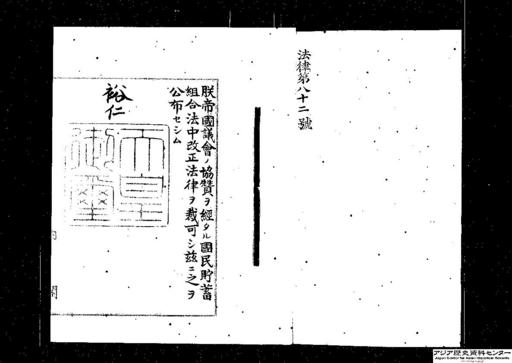 法律第八十二號
朕帝國議會ノ協贊ヲ經タル國民貯蓄
組合法中改正法律ヲ裁可シ玆ニ之ヲ
公布セシム
裕仁
天皇
御璽
内閣
アジア歴史資料センター
Japan Center for Asian Historical Records